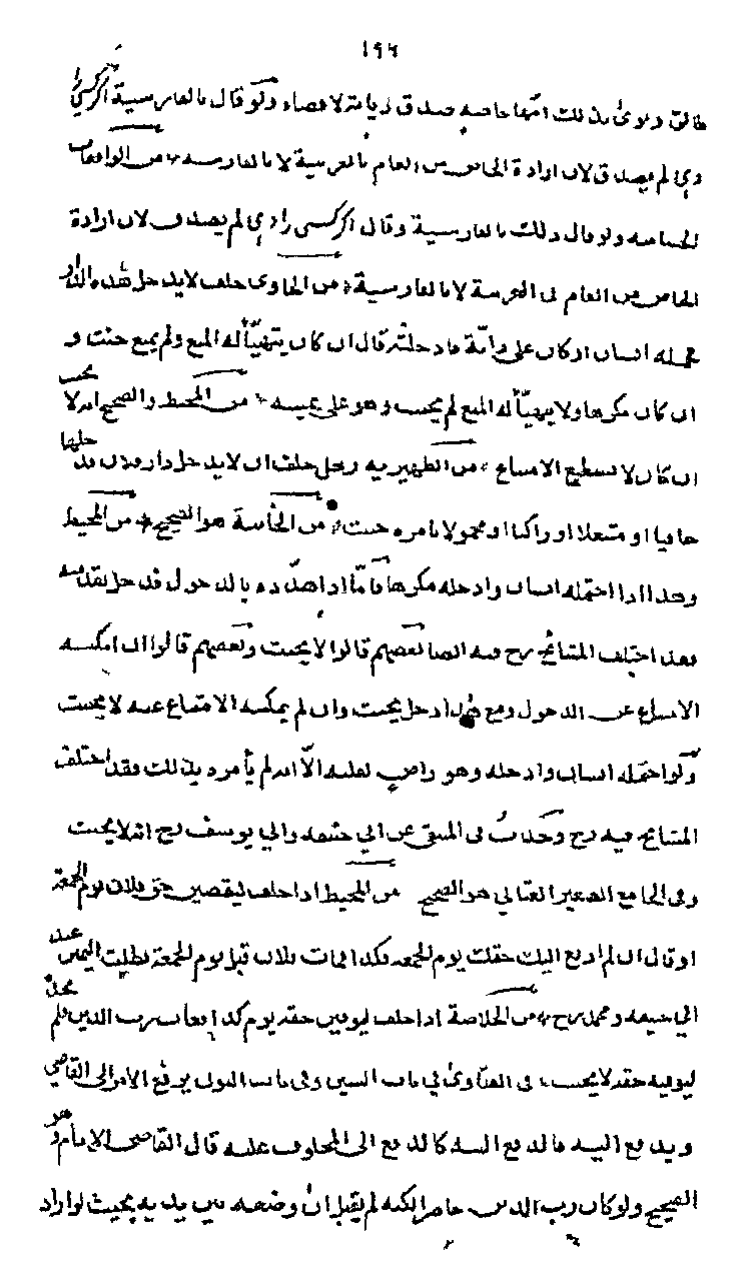 ١٩٦
طالق ونوى بذلك امها خاصة صدق ديانة لا قضاء ولو قال بالفارسية اكركسى
لم يصدق لان ارادة الخاص من العام بالعربية لا بالفارسية من الواقعات
الحسامية ولو قال ذلك بالفارسية وقال اكركسى را لم يصدق لان ارادة
الخاص من العام فى العربية لا بالفارسية من الحاوى حلف لا يدخل هذه الدار
فحمله انسان او كان على دابة فادخلته قال ان كان يتهيأ له المنع ولم يمنع حنث و
ان كان مكرها ولا يتهيأ له المنع لم يحنث وهو على يمينه من المحيط والصحيح انه لا يحنث
ان كان لا يستطيع الامتناع من الظهيرية رجل حلف ان لا يدخل دار فلان فدخلها
حافيا او متنعلا او راكبا او محمولا بامره حنث من الخانية هو الصحيح من المحيط
وهذا اذا احتمله انسان وادخله مكرها فاما اذا هدده بالدخول فدخل بقدميه
فقد اختلف المشائخ رح فيه ايضا بعضهم قالوا لا يحنث وبعضهم قالوا ان امكنه
الامتناع عن الدخول ومع هذا دخل يحنث وان لم يمكنه الامتناع عنه لا يحنث
ولو احتمله انسان وادخله وهو راض بقلبه الا انه لم يأمره بذلك فقد اختلف
المشايخ فيه رح وحدث فى المنتقى عن ابي حنيفه وابي يوسف رح انه لا يحنث
وفى الجامع الصغير العتابي هو الصحيح من المحيط اذا حلف ليقضين حق فلان يوم الجمعة
او قال ان لم ادفع اليك حقك يوم الجمعه فكذا فمات فلان قبل يوم الجمعة بطلت اليمين عند
ابي حنيفه ومحمد رح من الخلاصة اذا حلف ليوفين حقه يوم كذا فغاب رب الدين فلم يجد
ليوفيه حقه لا يحنث فى الفتاوى في باب السين وفى باب النون يرفع الامر الى القاضي
ويدفع اليه فالدفع اليه كالدفع الى المحلوف عليه قال القاضى الامام وهو
الصحيح ولو كان رب الدين حاضرا لكنه لم يقبل ان وضعه بين يديه بحيث لو اراد